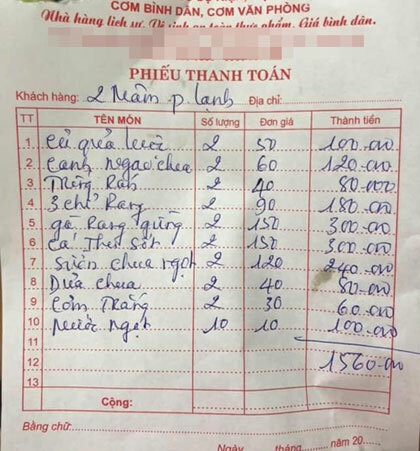 CƠM BÌNH DÂN, CƠM VĂN PHÒNG
Nhà hàng lịch sự. Vệ sinh an toàn thực phẩm. Giá bình dân.
PHIẾU THANH TOÁN
Khách hàng: 2 mâm p. lạnh Địa chỉ:
TT TÊN MÓN Số lượng Đơn giá Thành tiền
1 Củ quả luộc 2 50 100.000
2 Canh ngao chua 2 60 120.000
3 Trứng Rán 2 40 80.000
4 3 chỉ Rang 2 90 180.000
5 gà Rang gừng 2 150 300.000
6 Cá Thu Sốt 2 150 300.000
7 Sườn chua ngọt 2 120 240.000
8 Dưa chua 2 40 80.000
9 Cơm Trắng 2 30 60.000
10 Nước ngọt 10 10 100.000
11
12 1560.000
13
Cộng:
Bằng chữ:
Ngày tháng năm 20